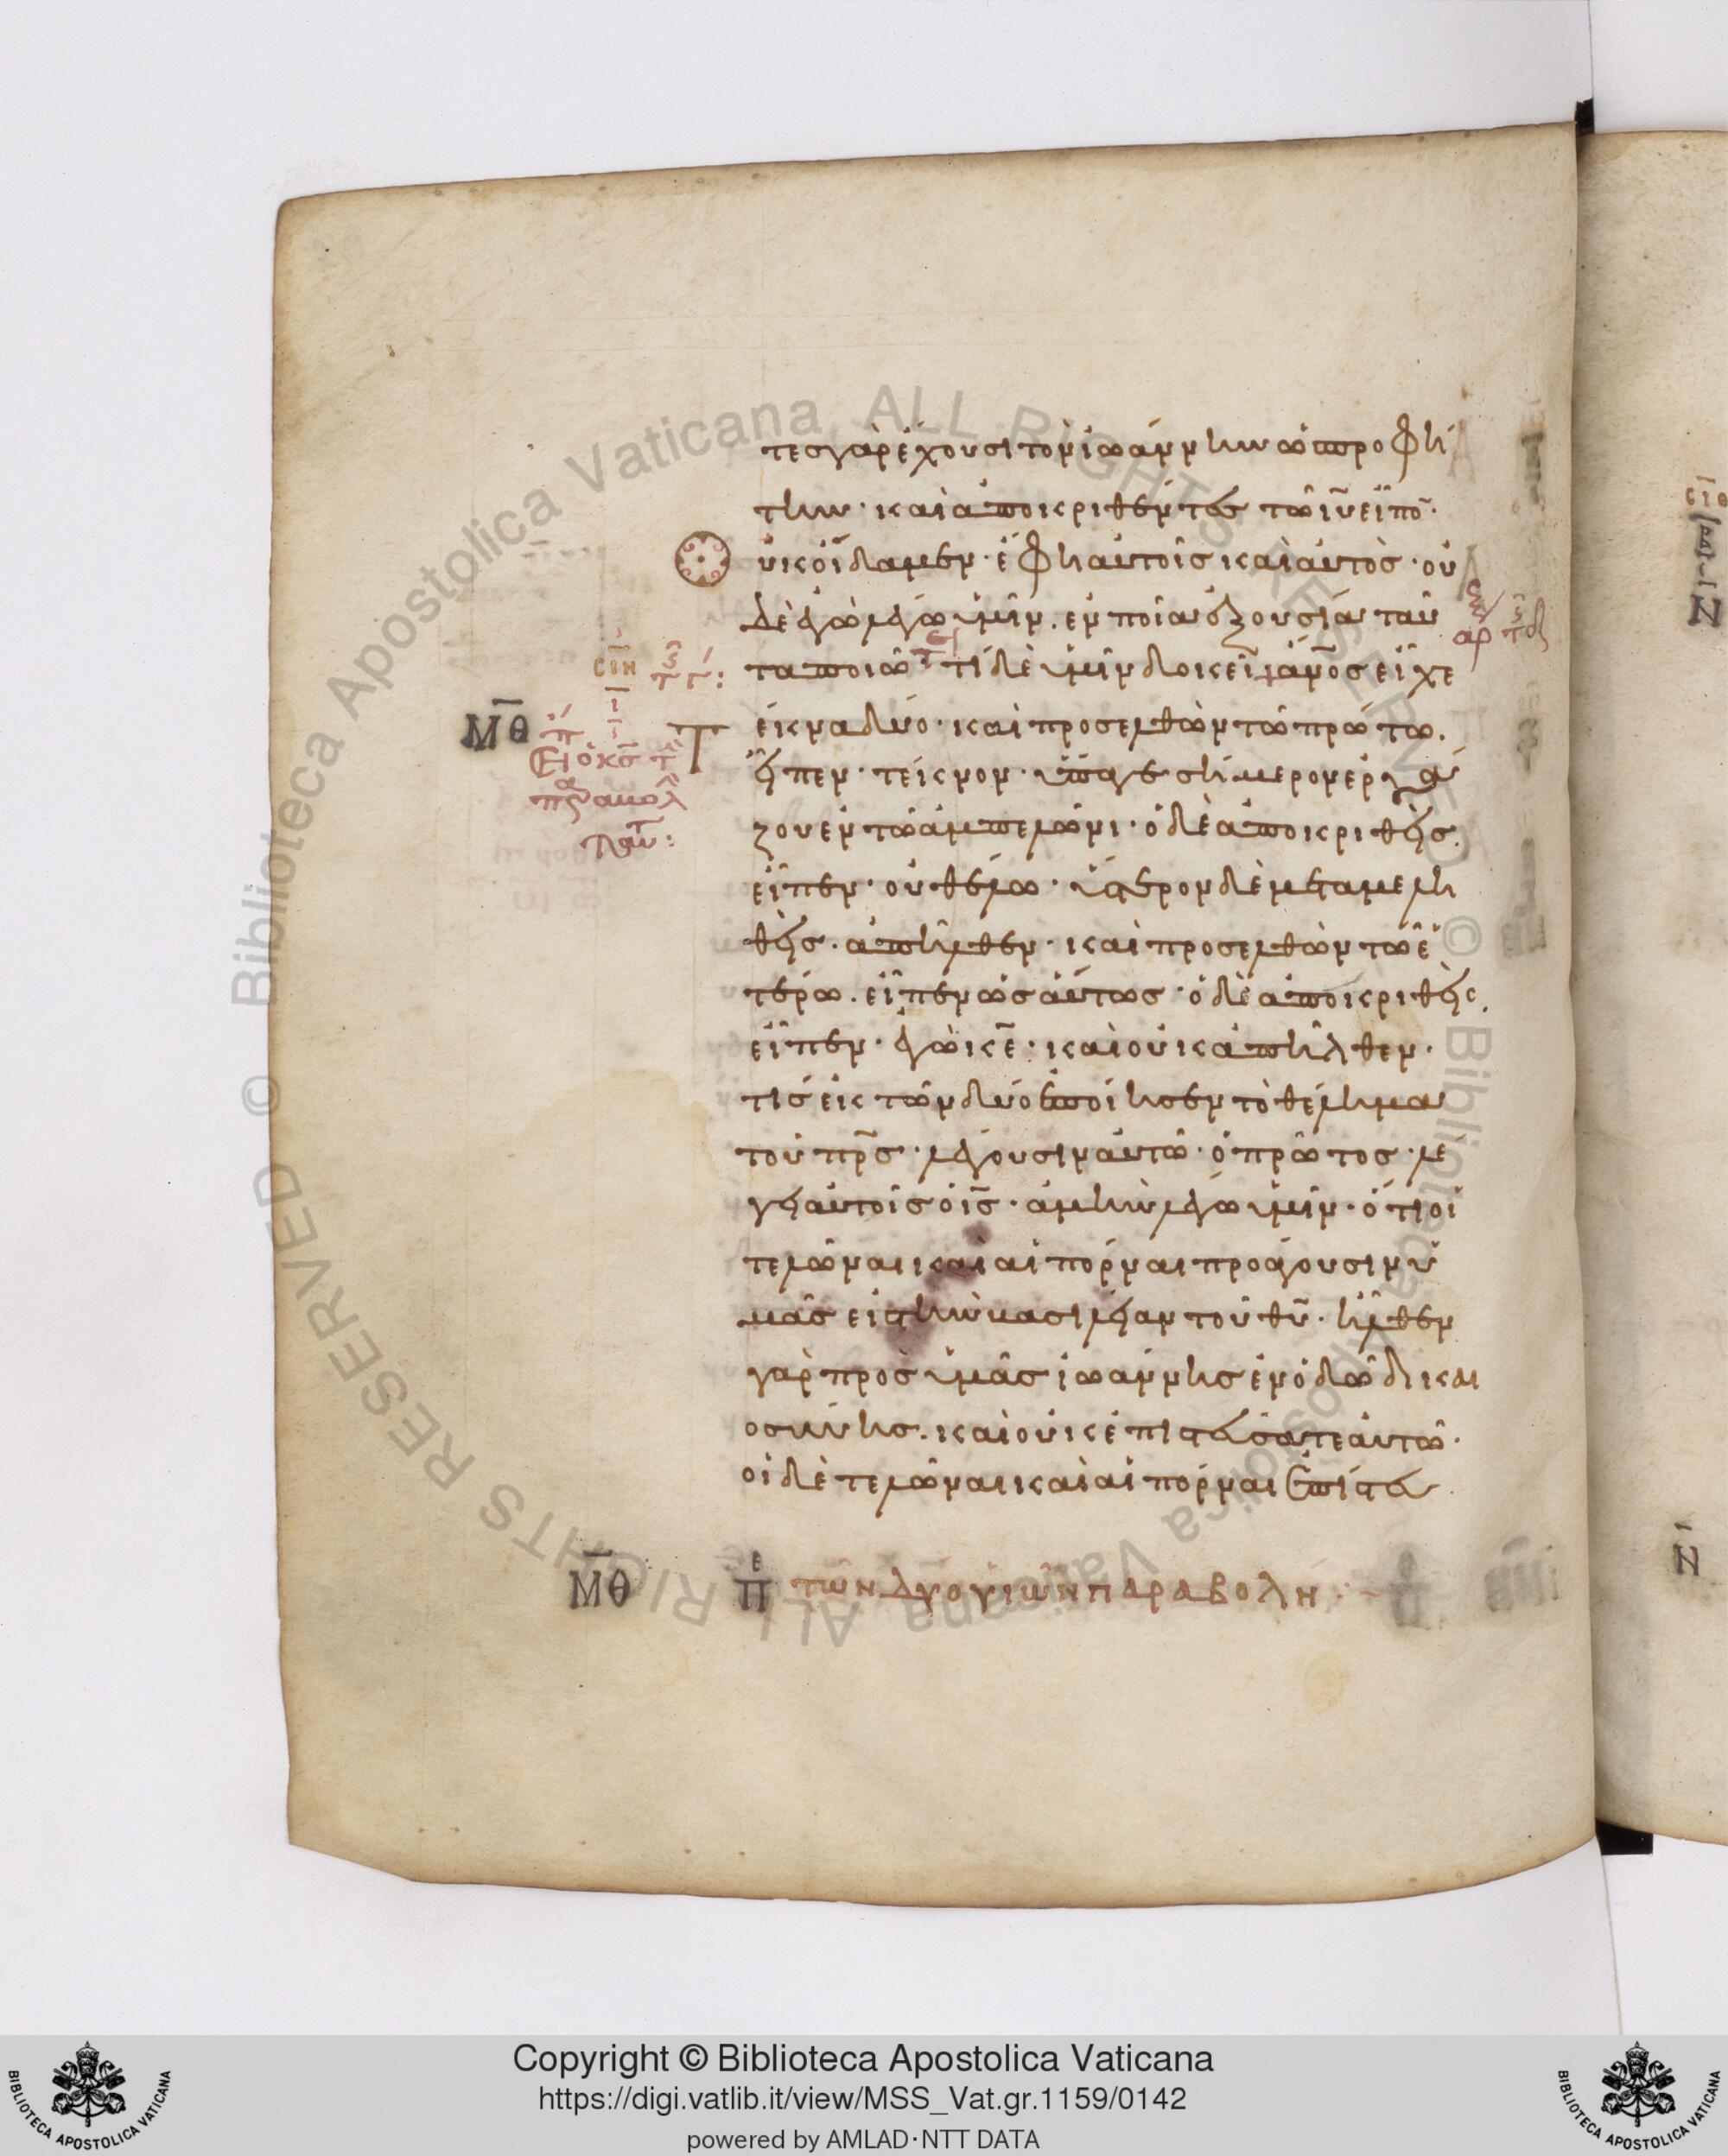 τες γὰρ ἔχουσι τὸν ἰωάννην ὡς προφή
την· καὶ ἀποκριθέντες τῶ ιυ εἶπο̅·
οὐκ οἴδαμεν· ἔφη αὐτοῖς καὶ αὐτὸς· οὐ
δὲ ἐγὼ λέγω ὑμῖν. ἐν ποία ἐξουσία ταῦ
τα ποιῶ τί δὲ ὑμῖν δοκεῖ ἄνος εἶχε
τέκνα δύο· καὶ προσελθὼν τῶ πρώτω.
εἶπεν· τέκνον· ὕπαγε σήμερον ἐργά
ζου ἐν τῶ ἀμπελῶνι· ὁ δὲ ἀποκριθεὶς.
εἶπεν· οὐ θέλω· ὕστερον δὲ μεταμελη
θεὶς. ἀπῆλθεν· καὶ προσελθὼν τῶ ἑ
τέρω. εἶπεν ὡσαύτως· ὁ δὲ ἀποκριθεὶς.
εἶπεν· ἐγὼ κε̅· καὶ οὐκ ἀπῆλθεν·
τίς ἐκ τῶν δύο ἐποίησεν τὸ θέλημα
τοῦ πρ̅ς· λέγουσιν αὐτῶ· ὁ πρῶτος· λέ
γει αὐτοῖς ὁ ι̅ς· ἀμὴν λέγω ὑμῖν· ὅτι οἱ
τελῶναι καὶ αἱ πόρναι προάγουσιν ὑ
μᾶς εἰς τὴν βασιλείαν τοῦ θυ̅· ἦλθεν
γὰρ πρὸς ὑμᾶς ἰωάννης ἐν ὁδῶ δικαι
οσύνης. καὶ οὐκ ἐπιστεύσατε αὐτῶ·
οἱ δὲ τελῶναι καὶ αἱ πόρναι ἐπίστευ
σιη
ΜΘ
ΜΘ Πε τῶν δύο υἱῶν παραβολή
Ν
© Biblioteca Apostolica Vaticana ALL RIGHTS RESERVED
© Biblioteca Apostolica Vaticana ALL RIGHTS RESERVED
Copyright © Biblioteca Apostolica Vaticana
https://digi.vatlib.it/view/MSS_Vat.gr.1159/0142
powered by AMLAD·NTT DATA
BIBLIOTECA APOSTOLICA VATICANA
BIBLIOTECA APOSTOLICA VATICANA